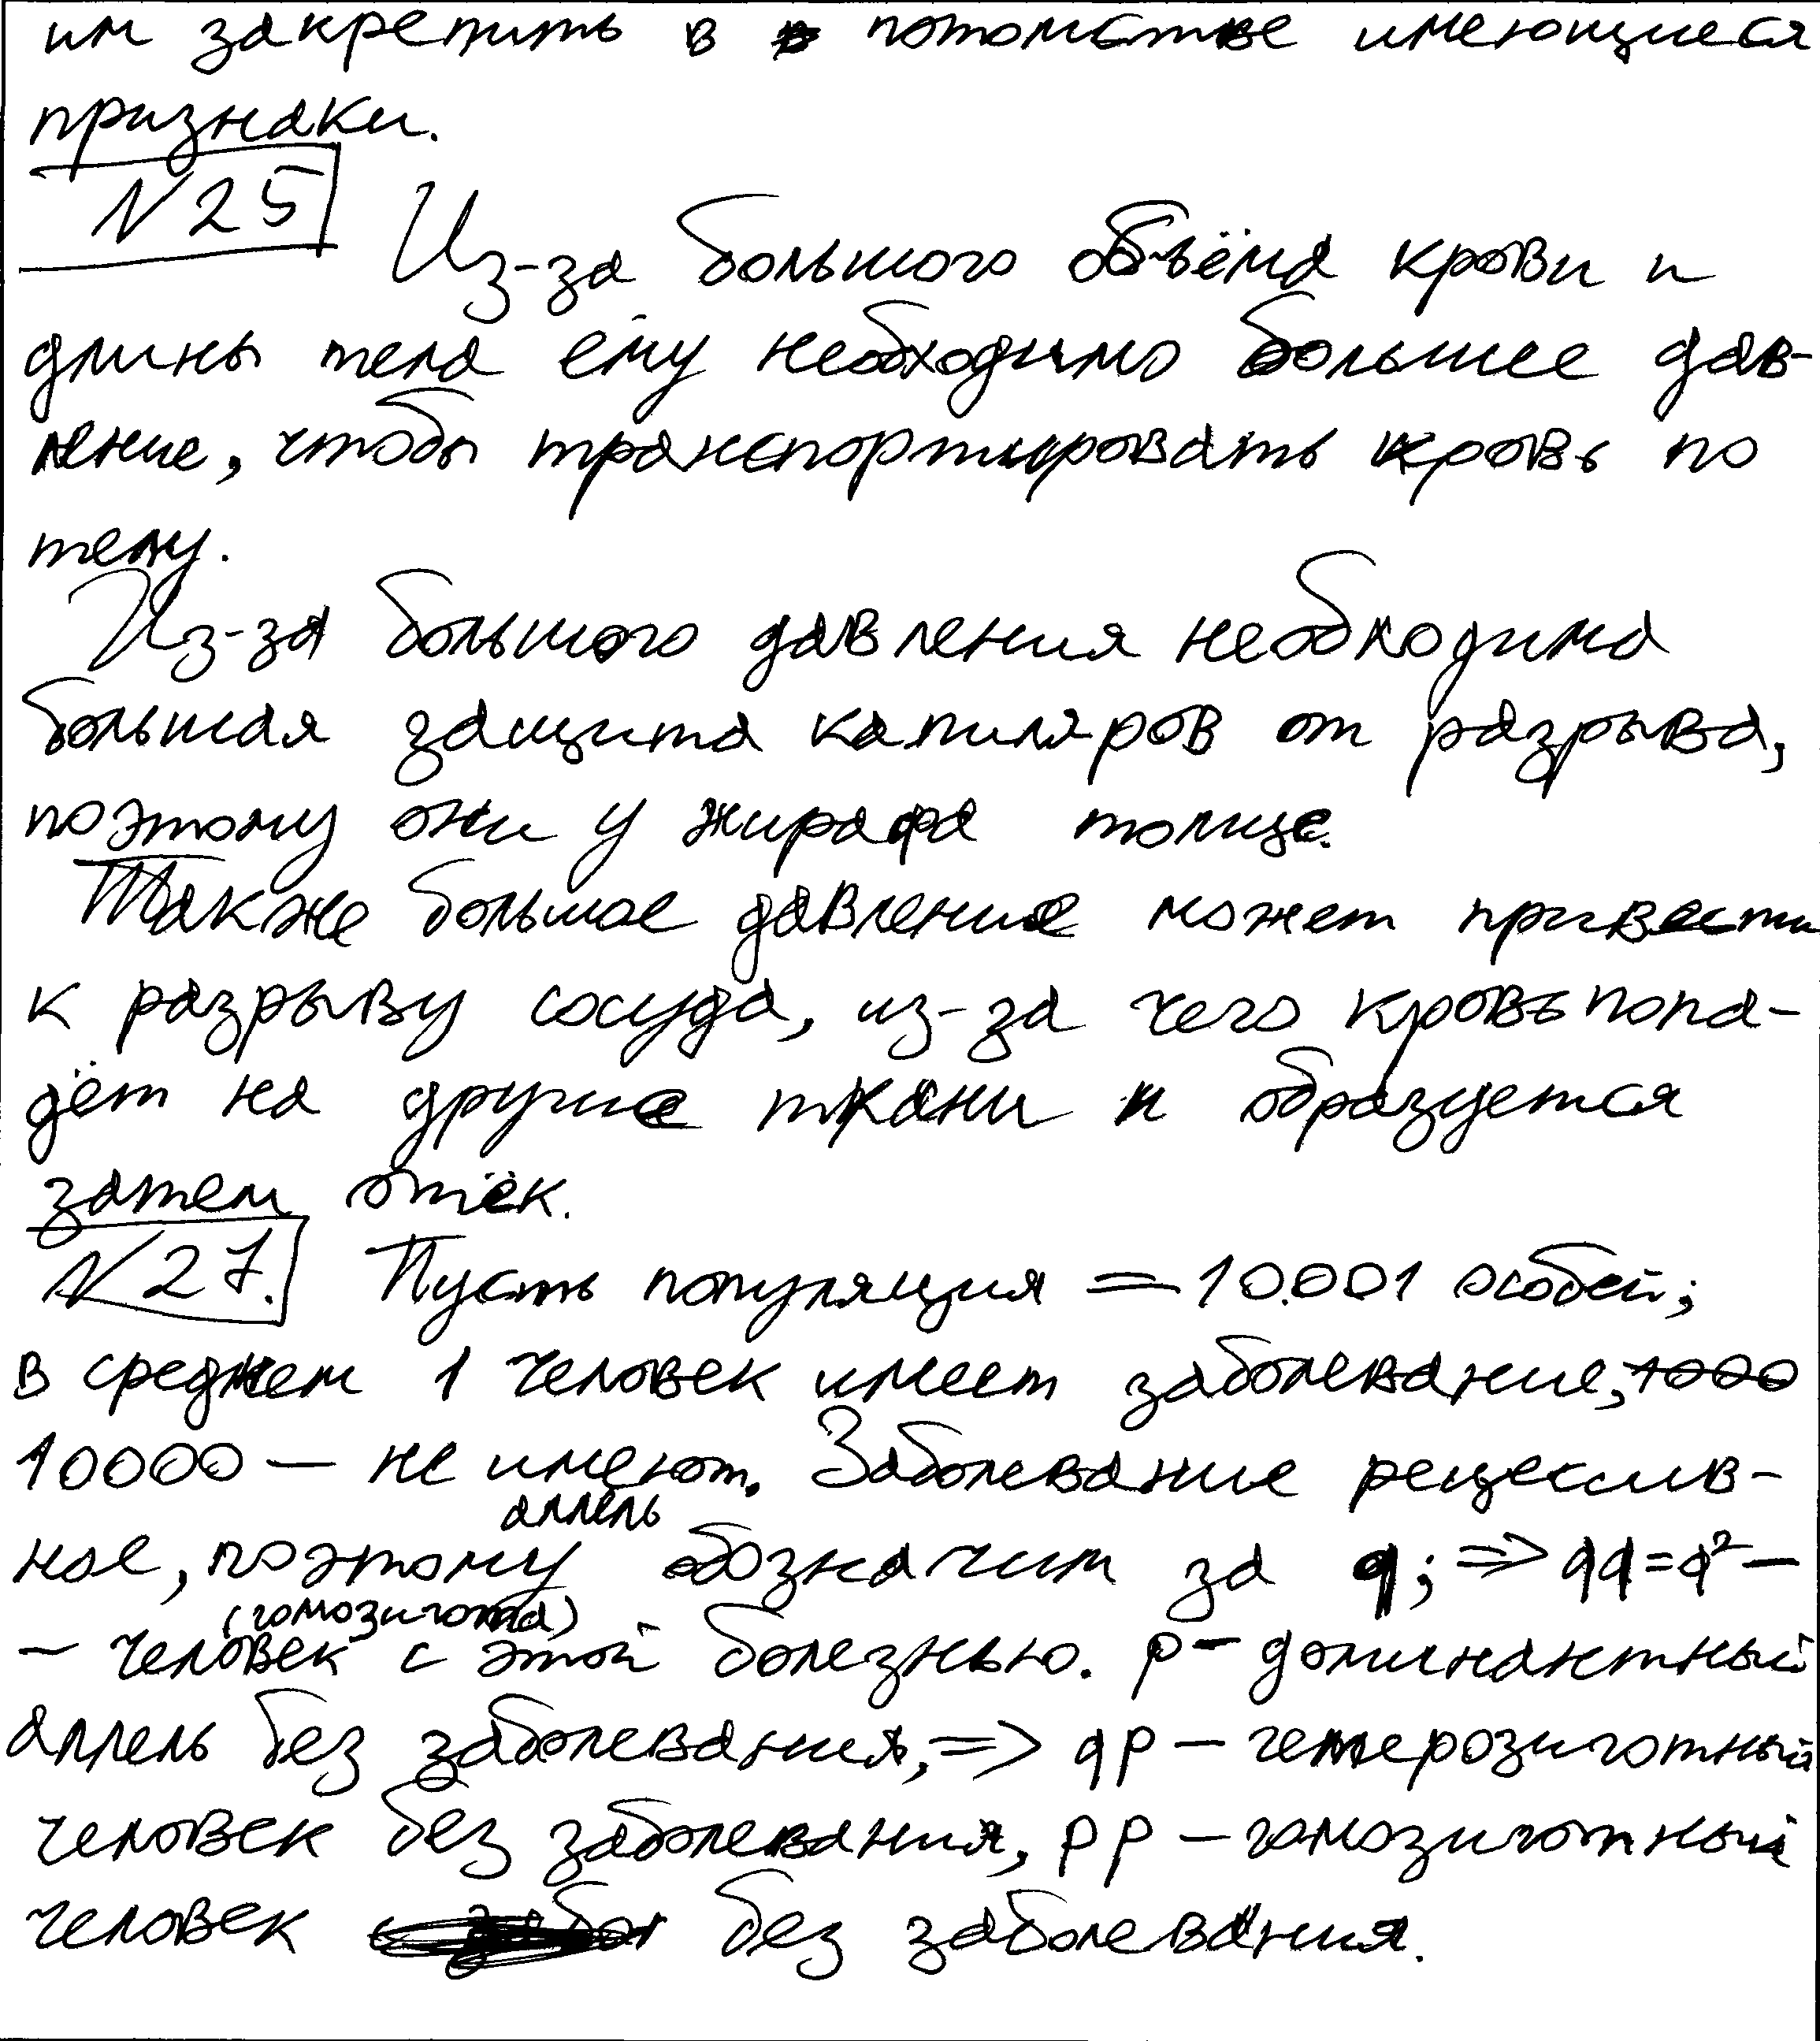 им закрепить в потомстве имеющиеся
признаки.
N25
Из-за большого объёма крови и
длины тела ему необходимо большее дав-
ление, чтобы транспортировать кровь по
телу.
Из-за большого давления необходима
большая защита капиляров от разрыва,
поэтому они у жирафа толще.
Также большое давление может привести
к разрыву сосуда, из-за чего кровь попа-
дёт на другие ткани и образуется
затем отёк.
N27. Пусть популяция = 10.001 особей;
в среднем 1 человек имеет заболевание, 1000
10000 — не имеют. Заболевание рецессив-
аллель
ное, поэтому обозначим за q; => qq=q² —
(гомозигота)
— человек с этой болезнью. p — доминантный
аллель без заболевания, => qp — гетерозиготный
человек без заболевания, pp — гомозиготный
человек без заболевания.